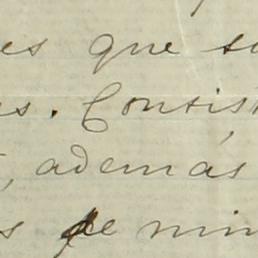 es que s
s. Consist
, además
s de nin